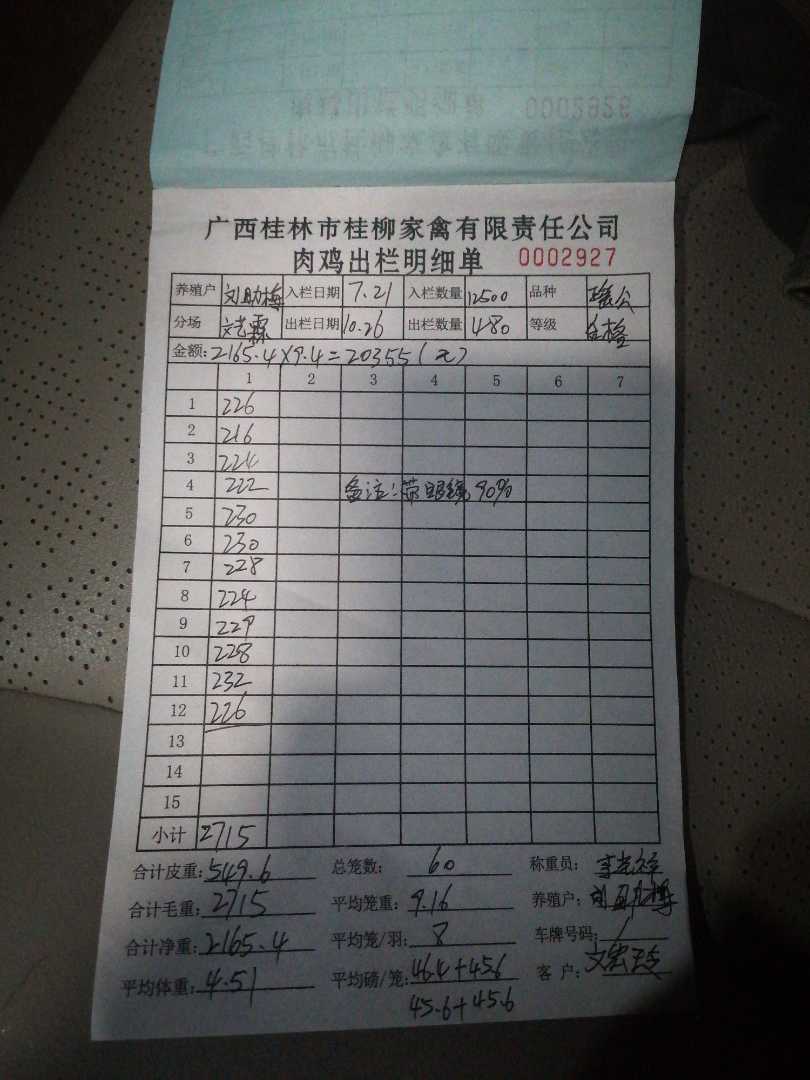 0002926
广西桂林市桂柳家禽有限责任公司
肉鸡出栏明细单 0002927
养殖户 入栏日期 7.21 入栏数量 12500 品种
分场 出栏日期 10.26 出栏数量 480 等级 合格
金额: 2165.4×9.4=20355(元)
1 2 3 4 5 6 7
1 226
2 216
3 224
4 222 备注:带眼镜90%
5 230
6 230
7 228
8 224
9 229
10 228
11 232
12 226
13
14
15
小计 2715
合计皮重: 549.6 总笼数: 60 称重员:
合计毛重: 2715 平均笼重: 9.16 养殖户:
合计净重: 2165.4 平均笼/羽: 8 车牌号码: /
平均体重: 4.51 平均磅/笼: 46.4+45.6 客 户:
45.6+45.6